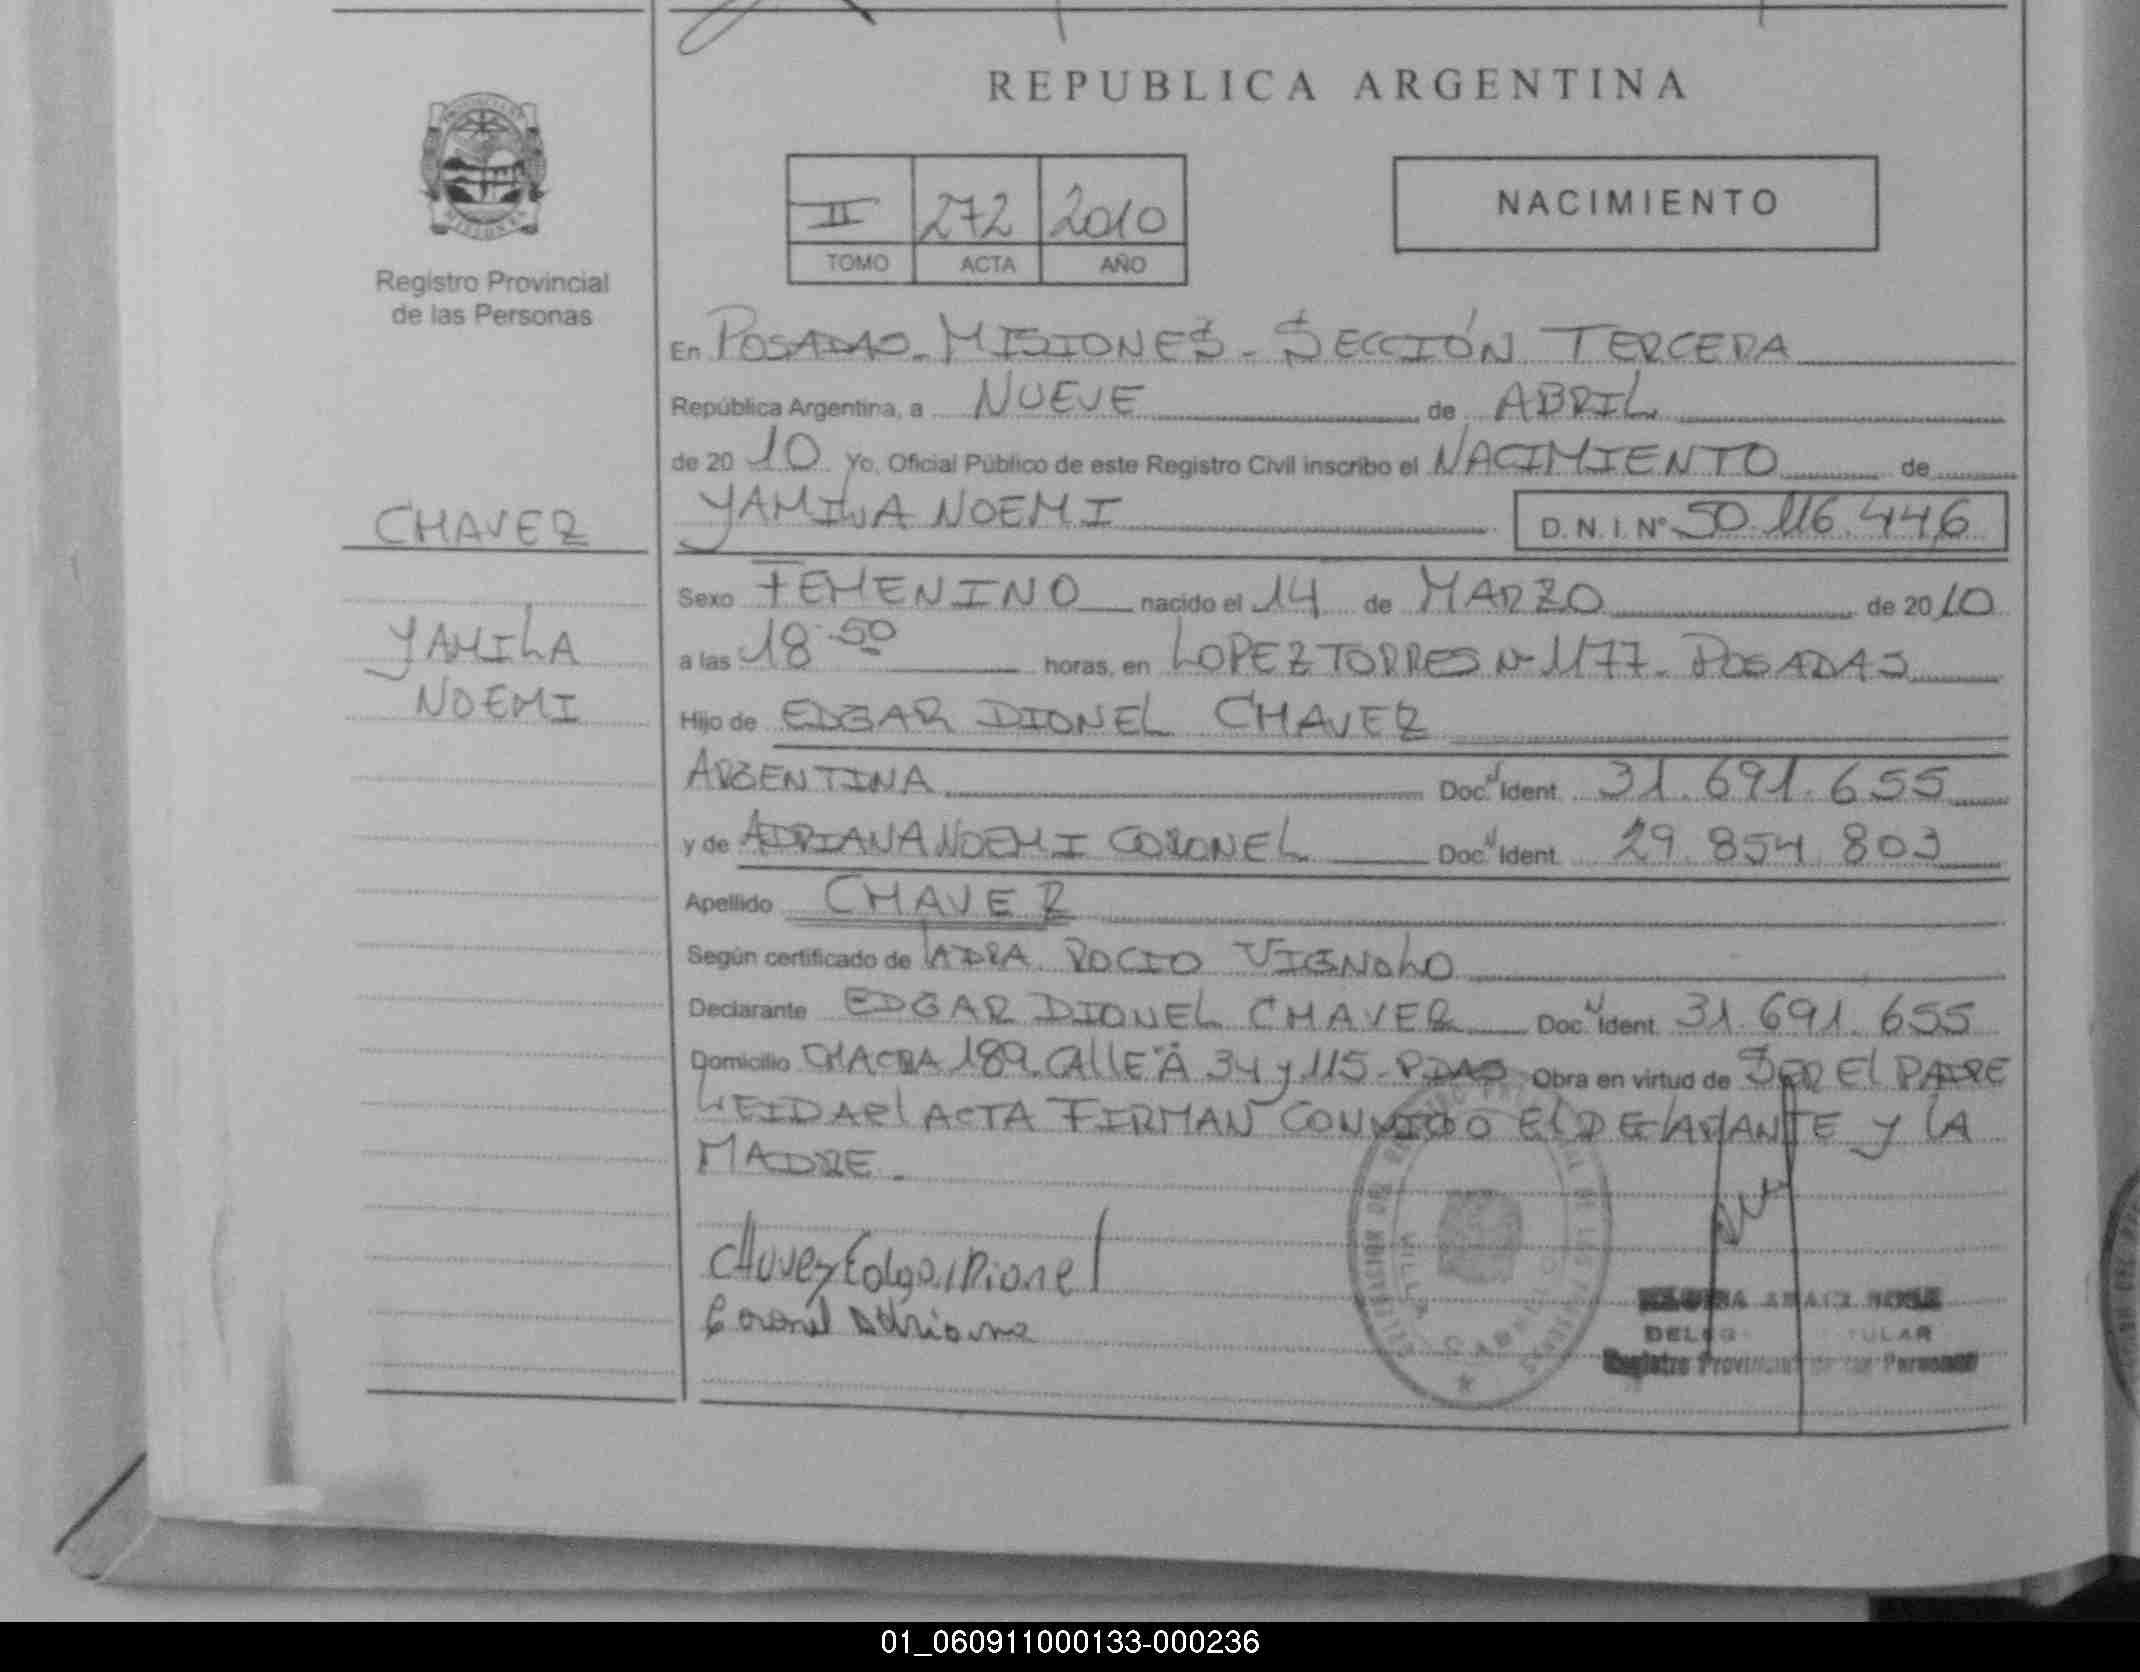 REPUBLICA ARGENTINA
II 272 2010
TOMO ACTA AÑO
NACIMIENTO
Registro Provincial
de las Personas
CHAVEZ
YAMILA
NOEMI
En POSADAS - MISIONES - SECCIÓN TERCERA
República Argentina, a NUEVE de ABRIL
de 20 10 Yo, Oficial Público de este Registro Civil inscribo el NACIMIENTO de
YAMILA NOEMI D.N.I. Nº 50.116.446
Sexo FEMENINO nacido el 14 de MARZO de 20 10
a las 18:50 horas, en LOPEZ TORRES Nº 1177 - POSADAS
Hijo de EDGAR DIONEL CHAVEZ
ARGENTINA Doc. Ident. 31.691.655
y de ADRIANA NOEMI CORONEL Doc. Ident. 29.854.803
Apellido CHAVEZ
Según certificado de LA DRA. ROCIO VIGNOLO
Declarante EDGAR DIONEL CHAVEZ Doc. Ident. 31.691.655
Domicilio CHACRA 189. CALLE "A" 34 y 115 - PDAS Obra en virtud de SER EL PADRE
LEIDA el ACTA FIRMAN CONMIGO El DEClARANTE y lA
MADRE.
Chavez Edgar Dionel
Coronel Adriana
VILLA CABELLO
Registro Provincial de las Personas
01_060911000133-000236